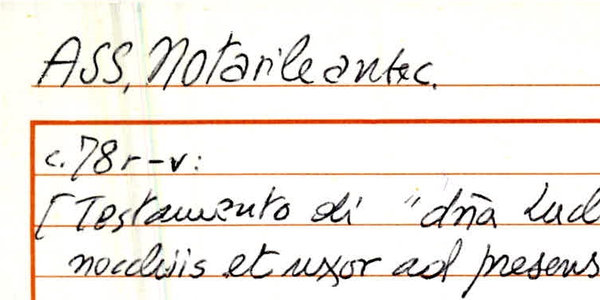 ASS, Notarile antec.
c. 78 r-v:
[Testamento di "dña Lud
et uxor ad presens